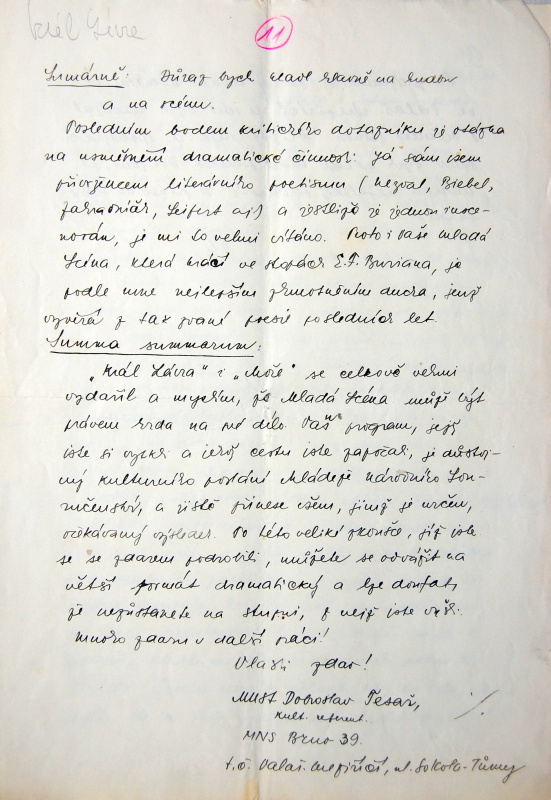 Král Lávra
11
Sumárně: Důraz bych kladl hlavně na hudbu
a na scénu.
Posledním bodem kritického dotazníku je otázka
na usměrnění dramatické činnosti. Já sám jsem
přívržencem literárního poetismu (Nezval, Biebl,
Zahradníček, Seifert aj) a zjistil
je mi to velmi vítáno. Proto i Vaše mladá
Scéna, která kráčí ve stopách E.F. Buriana, je
podle mne nejlepším zhmotněním ducha, jenž
vyvěrá z tak zvané poesie posledních let.
Summa summarum:
„Král Lávra" i „Moře" se celkově velmi
vydařil a myslím, že Mladá Scéna může být
právem hrda na své dílo. Váš program, jejž
jste si vytkli a jehož cestu jste započali, je důstoj-
ný kulturního poslání Mládeže národního Sou-
ručenství, a jistě přinese všem, jimž je určen,
očekávaný výsledek. Po této veliké zkoušce, jíž jste
se se zdarem podrobili, můžete se odvážit na
větší formát dramatický a lze doufat,
že nezůstanete na stupni, z nejž jste vyšli.
Mnoho zdaru v další práci!
Vlasti zdar!
Dobroslav Tesař,
kult. referent.
MNS Brno 39.
t.č. Valaš. Meziříčí, ul. Sokola-Tůmy